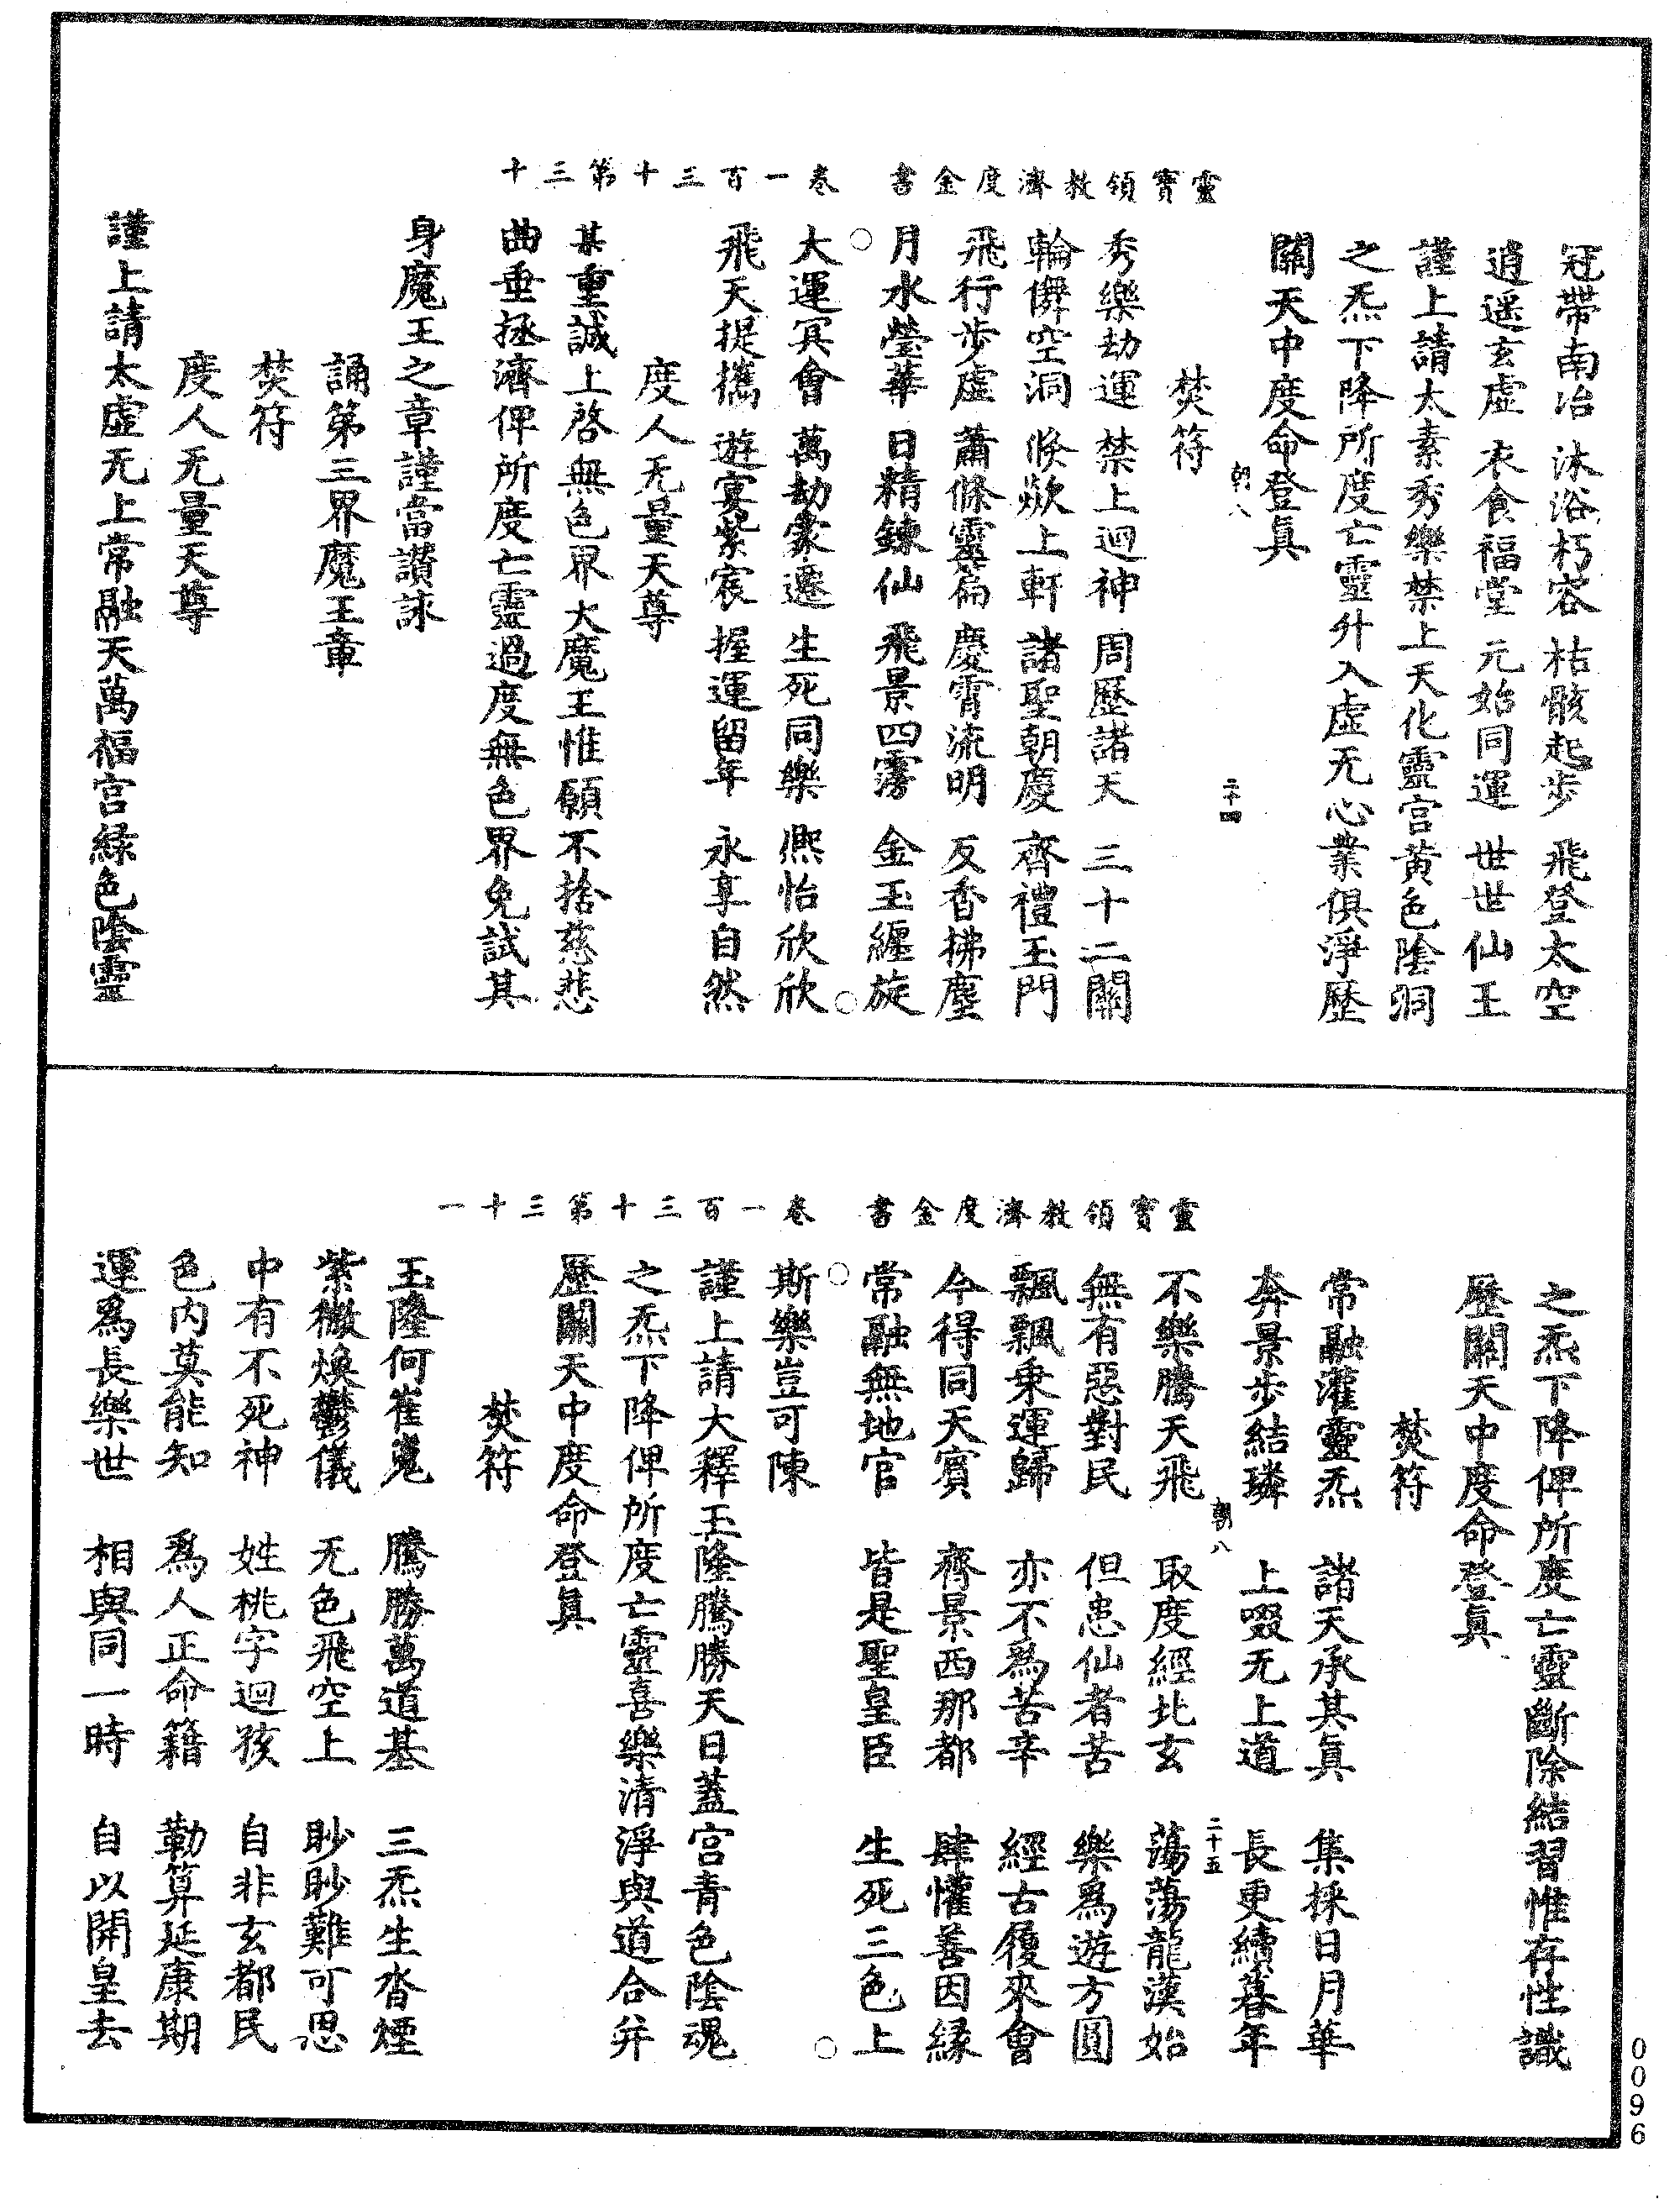 靈寶領教濟度金書　卷一百三十第三十
冠帶南治　沐浴朽容　枯骸起步　飛登太空
逍遥玄虛　衣食福堂　元始同運　世世仙王
謹上請太素秀樂禁上天化靈宮黃色陰洞
之炁下降所度亡靈升入虛无心業俱淨歷
關天中度命登眞
朝八　二十四
焚符
秀樂劫運　禁上迴神　周歷諸天　三十二關
輪儛空洞　倏歘上軒　諸聖朝慶　齊禮玉門
飛行步虛　蕭條靈篇　慶霄流明　反香拂塵
月水瑩華　日精鍊仙　飛景四霶　金玉纏旋
大運冥會　萬劫彖遷　生死同樂　熈怡欣欣
飛天提攜　遊宴紫宸　握運留年　永享自然
度人无量天尊
某重誠上啓無色界大魔王惟願不捨慈悲
曲垂拯濟俾所度亡靈過度無色界免試其
身魔王之章謹當讚詠
誦第三界魔王章
焚符
度人无量天尊
謹上請太虛无上常融天萬福宮緑色陰靈
靈寶領教濟度金書　卷一百三十第三十一
之炁下降俾所度亡靈斷除結習惟存性識
歷關天中度命登眞
焚符
常融灌靈炁　諸天承其眞　集採日月華
奔景步結璘　上啜无上道　長更續暮年
朝八　二十五
不樂騰天飛　取度經北玄　蕩蕩龍漢始
無有惡對民　但患仙者苦　樂爲遊方圓
飄飄乘運歸　亦不爲苦辛　經古履來會
今得同天賓　齊景西那都　肆懽善因縁
常融無地官　皆是聖皇臣　生死三色上
斯樂豈可陳
謹上請大釋玉隆騰勝天日蓋宮青色陰魂
之炁下降俾所度亡靈喜樂清淨與道合并
歷關天中度命登眞
焚符
玉隆何崔嵬　騰勝萬道基　三炁生沓煙
紫微煥鬱儀　无色飛空上　眇眇難可思
中有不死神　姓桃字迴孩　自非玄都民
色内莫能知　爲人正命籍　勒算延康期
運爲長樂世　相與同一時　自以開皇去
0096